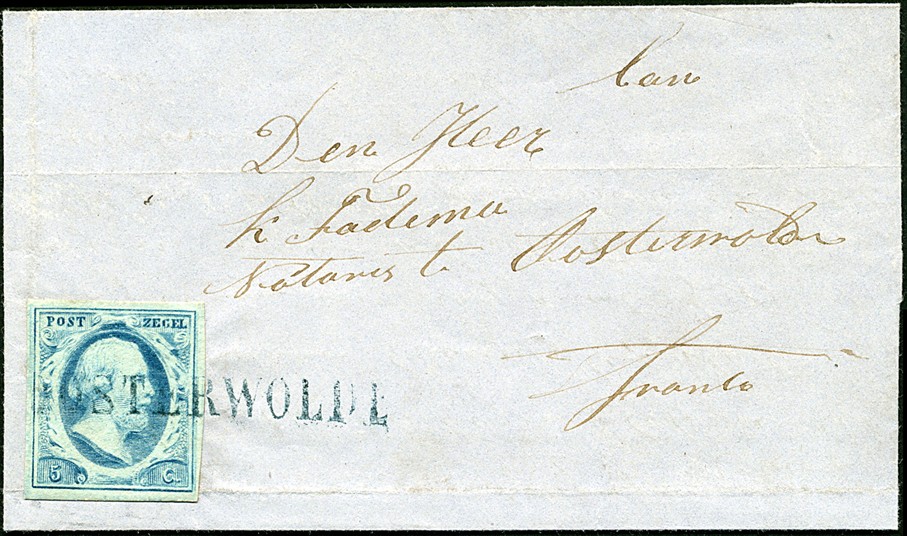 Aan
Den Heer
K Fadema
Notaris te Oosterwolde
Franco
POST ZEGEL
OOSTERWOLDE
5 C.